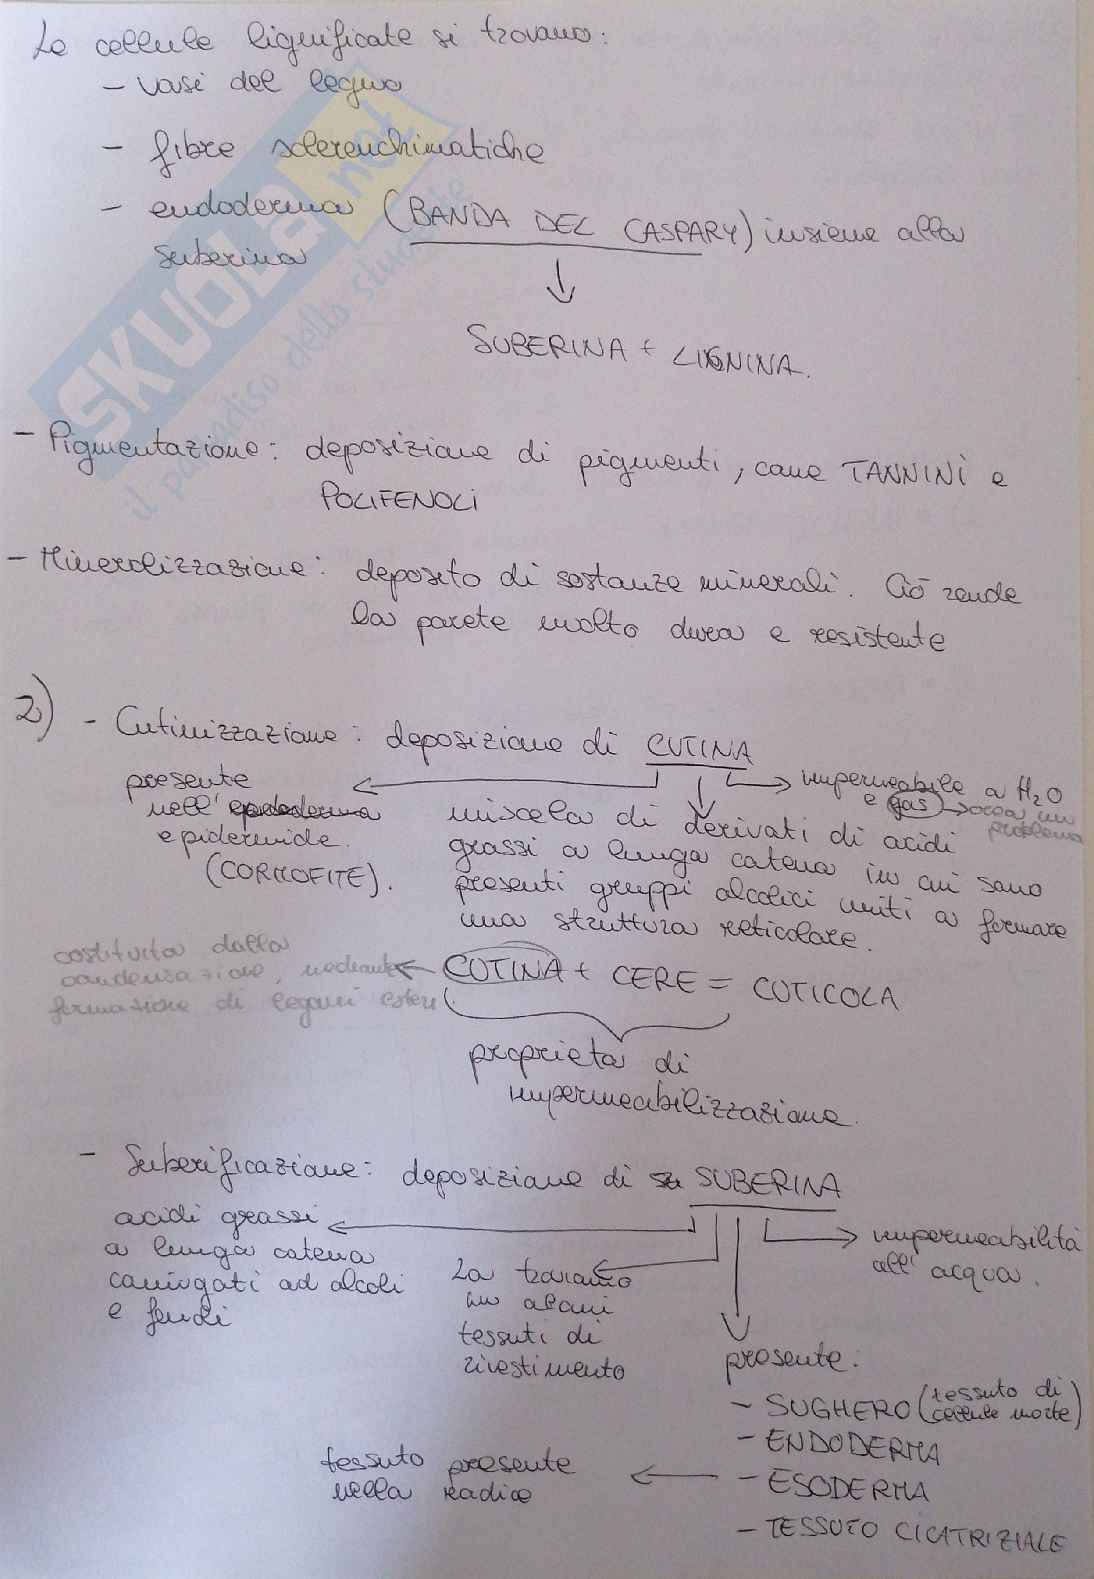 Le cellule lignificate si trovano:
- vasi del legno
- fibre sclerenchimatiche
- endoderma (BANDA DEL CASPARY) insieme alla
suberina
SUBERINA + LIGNINA.
- Pigmentazione: deposizione di pigmenti, come TANNINI e
POLIFENOLI
- Mineralizzazione: deposito di sostanze minerali. Ciò rende
la parete molto dura e resistente
2) - Cutinizzazione: deposizione di CUTINA
presente
nell'
epidermide.
(CORMOFITE).
miscela di derivati di acidi
grassi a lunga catena in cui sono
presenti gruppi alcolici uniti a formare
una struttura reticolare.
impermeabile a H2O
e gas → crea un
problema
costituita dalla
condensazione, mediante
formazione di legami esteri
CUTINA + CERE = CUTICOLA
proprietà di
impermeabilizzazione.
- Suberificazione: deposizione di SUBERINA
acidi grassi
a lunga catena
coniugati ad alcoli
e fenoli
La troviamo
in alcuni
tessuti di
rivestimento
impermeabilità
all' acqua.
presente:
- SUGHERO (tessuto di
cellule morte)
- ENDODERMA
- ESODERMA
tessuto presente
nella radice
- TESSUTO CICATRIZIALE
SKUOLA.net
il paradiso dello studente